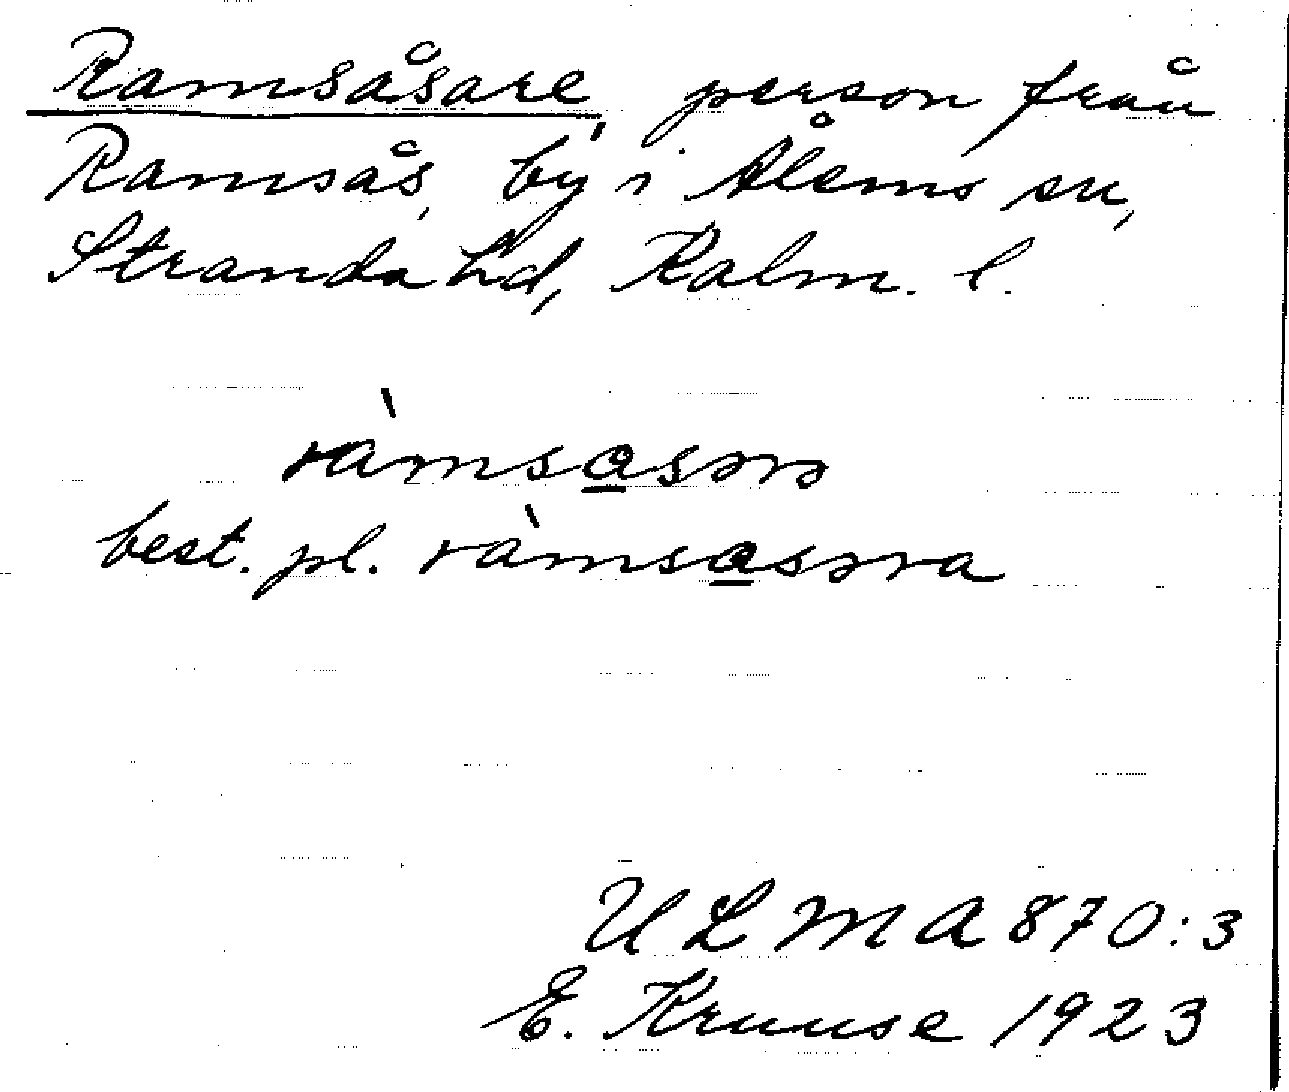 Ramsåsare, person från
Ramsås, by i Ålems sn,
Stranda hd, Kalm. l.
ràmsa̲sərə
best. pl. ràmsa̲səra
ULMA 870:3
E. Kruuse 1923